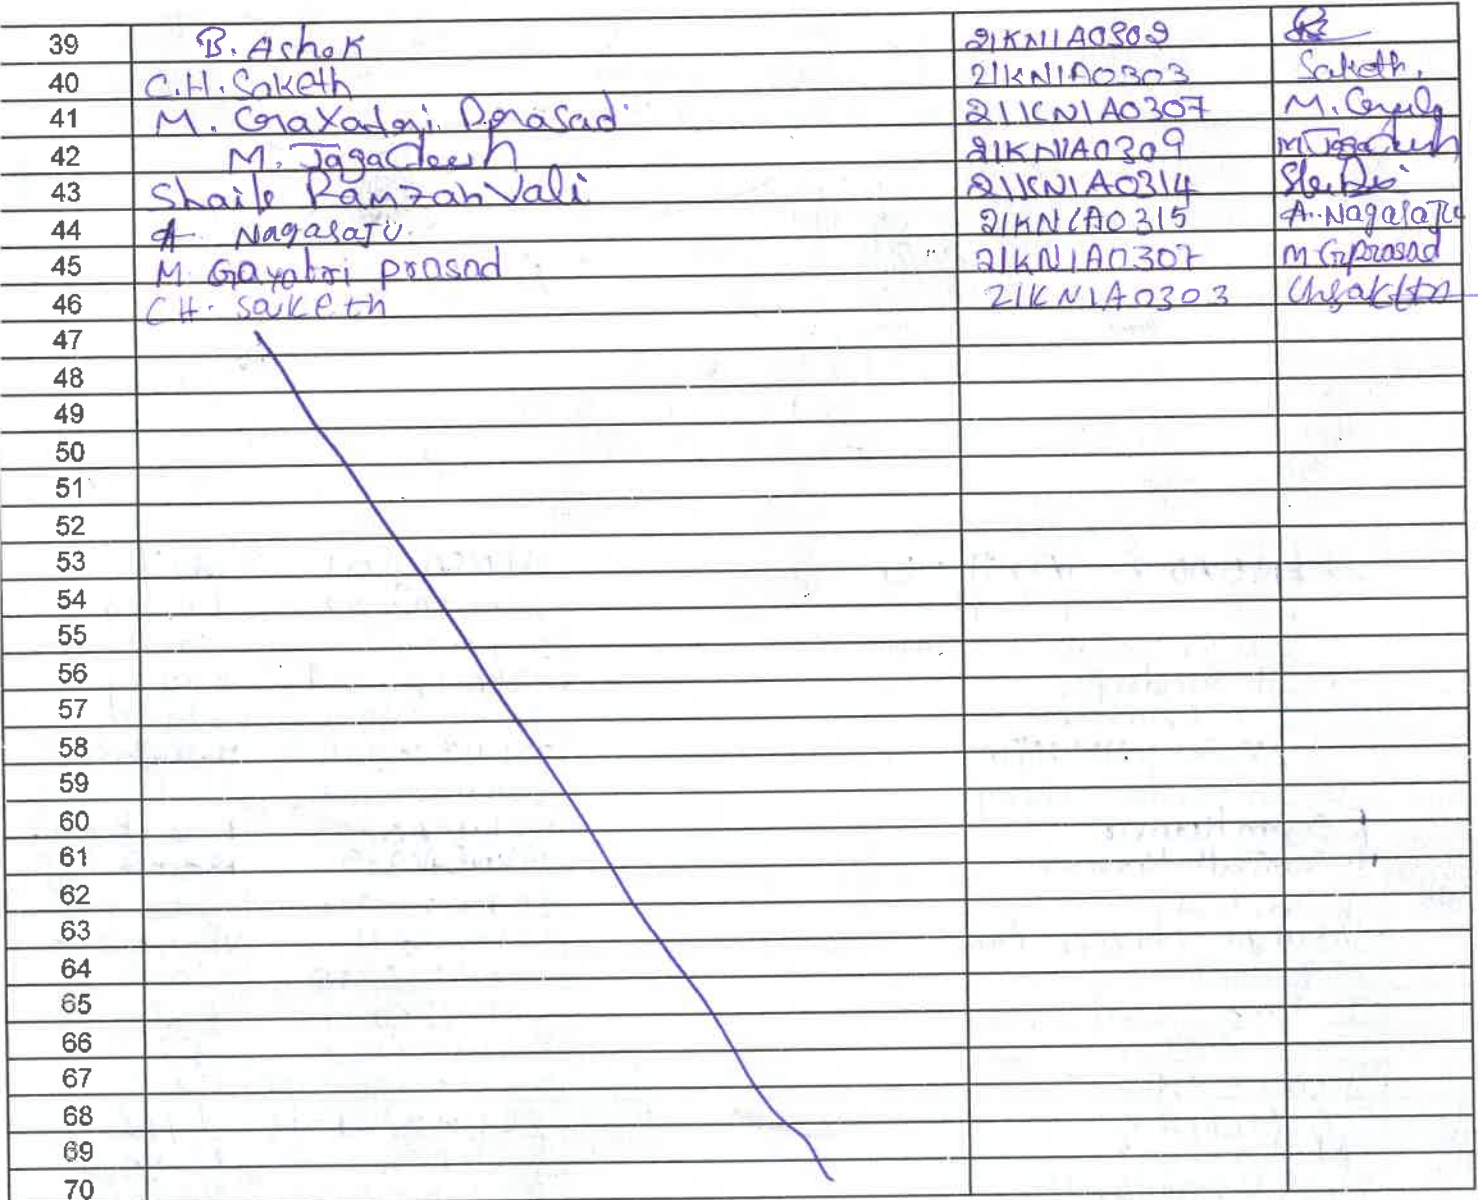 39 B. Ashok 21KN1A0302
40 C.H. Saketh 21KN1A0303 Saketh.
41 M. Gayatri Prasad 21KN1A0307
42 M. Jagadeesh 21KN1A0309 M Jagadeesh
43 Shaik Ramzan Vali 21KN1A0314
44 A. Nagaraju. 21KN1A0315 A. Nagaraju
45 M. Gayatri prasad 21KN1A0307 M G prasad
46 CH. saketh 21KN1A0303 Ch saketh
47
48
49
50
51
52
53
54
55
56
57
58
59
60
61
62
63
64
65
66
67
68
69
70